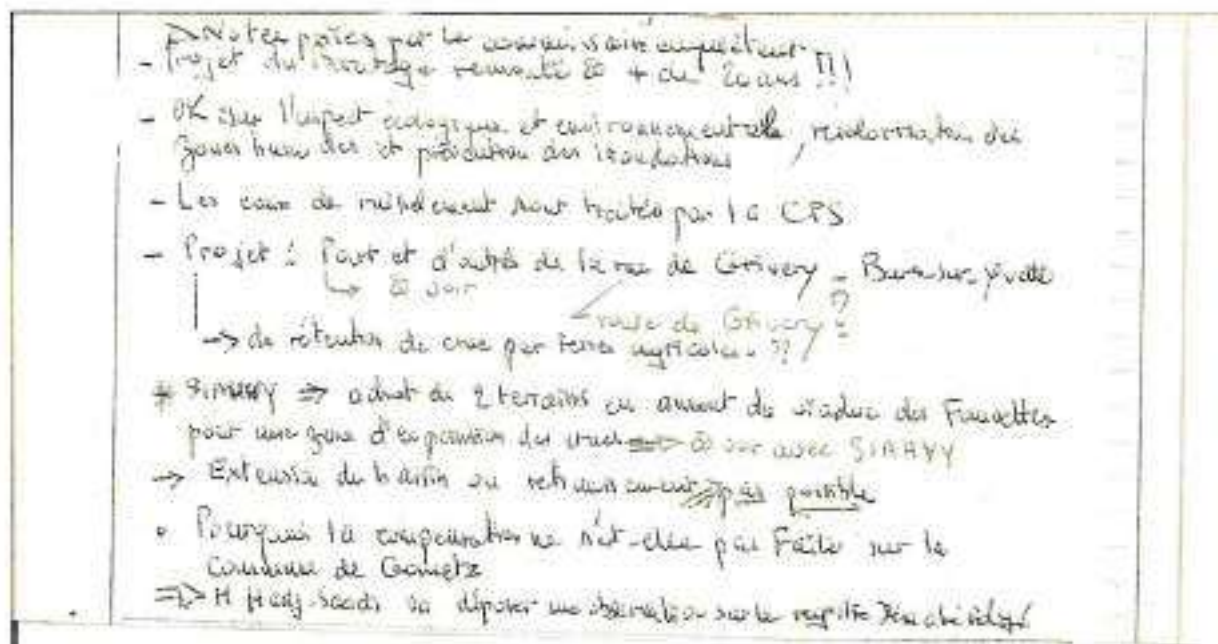 => Notes prises par le commissaire enquêteur
- Projet du remonte à + de 20 ans !!!
- OK sur l'aspect écologique et environnementale, des
zones humides et prévention des inondations
- Les eaux de ruissellement sont traitées par la CPS
- Projet : Part et d'autre de la rue de Grivery - Bures sur Yvette
↳ à voir
route de Grivery ?
-> de rétention de crue par terres agricoles ??
* SIAHVY => achat de 2 terrains en amont du viaduc des Fauvettes
pour une zone d'expansion des crues => à voir avec SIAHVY
-> Extension du bassin ou pas possible
• Pourquoi la compensation ne s'est-elle pas faite sur la
Commune de Gometz
=> M Hadj-Saadi va déposer une observation sur le registre